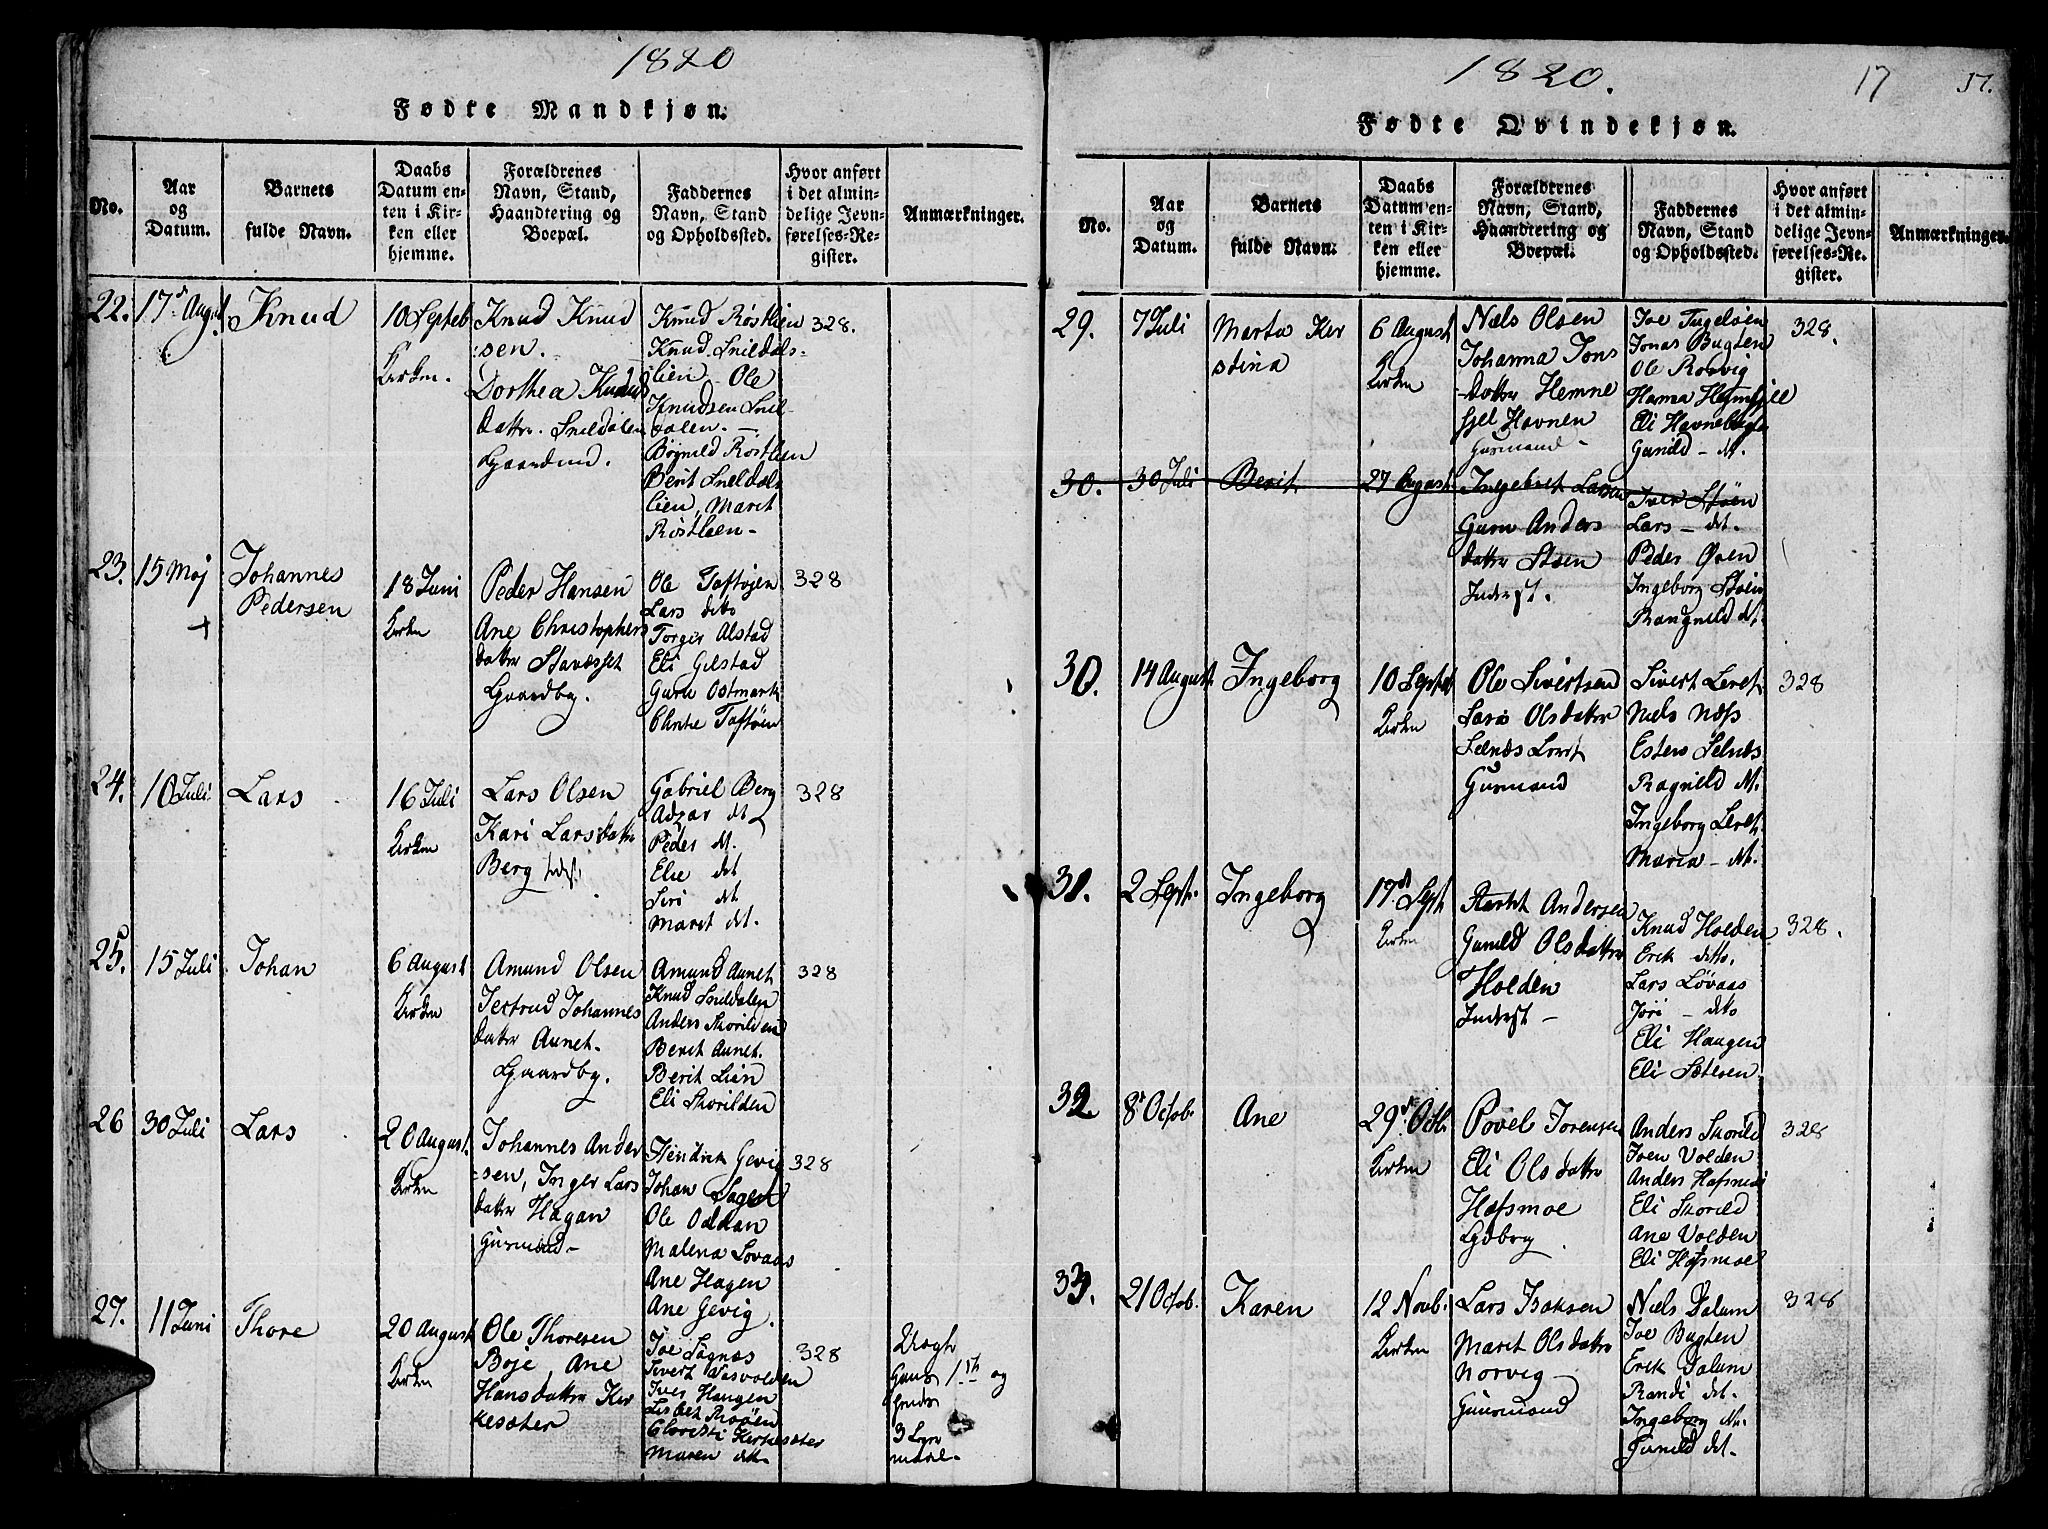 1820
Fødte Mandkjøn.
No.
Aar
og
Datum.
Barnets
fulde Navn.
Daabs
Datum en-
ten i Kir-
ken eller
hjemme.
Forældrenes
Navn, Stand,
Haandtering og
Boepæl.
Faddernes
Navn, Stand
og Opholdssted.
Hvor anført
i det almin-
delige Jevn-
førelses-Re-
gister.
Anmærkninger.
22.
17 August
Knud
10 Septeb
Kirken.
Knud Knud
:sen.
Dorthea Knuds
datter. Snildalen
Gaardmd.
Knud Røstlien
Knud Snildals-
lien Ole
Knudsen Snil-
dalen. —
Røgnild Røstlien
Berit Snildals
lien, Marit
Røstlien —
328.
23.
15 Maj
+
Johannes
Pedersen
18 Juni
Kirken
Peder Hansen
Ane Christophers
datter Stavæsset
Gaardbg.
Ole Toftøjen
Lars ditto
Torger Alstad
Eli Gilstad
Guru Ostmark
Chirke Toftøien
328
24.
10 Juli
Lars
16 Juli
Kirken
Lars Olsen
Kari Larsdatter
Berg Indst.
Gabriel Berg
Adzar det
Peder dt.
Elie det
Siri det
Maret det.
328
25.
15 Juli
Johan
6 August
Kirken
Amund Olsen
Jertrud Johannes
datter Aunet.
Gaardbg.
Amund Aunet
Knud Snildalen
Anders Skorilden
Berit Aunet.
Berit Lien
Eli Skorilden
328
26
30 Juli
Lars
20 August
Kirken
Johannes Ander
:sen, Inger Lars
datter Hagan
Husmand —
Hendrik Gevig
Johan Hagen
Ole Oddan
Malena Lovaas
Ane Hagen
Ane Gevig.
328
27.
11 Juni
Thore
20 August
Kirken
Ole Thoresen
Boje, Ane
Hansdatter Kir
kesæter
Joe Sagnæs
Sivert Vasvolden
Iver Haugen
Lisbet Moøen
Christi Kirkesæter
Maren dtt.
328
1ste og
3
1820.
17
17.
Fødte Qvindekjøn.
No.
Aar
og
Datum.
Barnets
fulde Navn.
Daabs
Datum en-
ten i Kir-
ken eller
hjemme.
Forældrenes
Navn, Stand,
Haandtering og
Boepæl.
Faddernes
Navn, Stand
og Opholdssted.
Hvor anført
i det almin-
delige Jevn-
førelses-Re-
gister.
Anmærkninger.
29.
7 Juli
Marta Ker
stina
6 August
Kirken
Næls Olsen
Johanna Jons
-datter Hemne
fjel Havnen
Husmand —
Joe Ingelsøen
Jonas Bugten
Ole Rovig
Hanna Hemfjell
Eli Havneberge
Gunild — dt.
328.
30.
30 Juli
Berit
27 August
Ingebret Larsen
Guru Anders
datter Støen
Inderst.
Iver Støen
Lars — det.
Peder Øien
Ingeborg Støen
Rangnild dt.
30.
14 August
Ingeborg
10 Septbr
Kirken
Ole Sivertsen
Lars Olsdatter
Selnæs Leret
Husmand
Sivert Leret
Niels Næss
Esten Selnæs
Ragnild dt.
Ingeborg Leret
Maria — dt.
328
31.
2 Septr.
Ingeborg
17 Sept
Kirken
Anders Andersen
Gunild Olsdatter
Holden
Inderst —
Knud Holden
Erik ditto.
Lars Løvaas
Jøri — dito
Eli Haugen
Eli Sætesen
328.
32.
8 Octob.
Ane
29 Octb.
Kirken
Povel Jorensen
Eli Olsdatter
Hafsmoe
Gdbrg
Anders Skorild
Joen Volden
Anders Hafsmoe
Eli Skorild
Ane Volden
Eli Hafsmoe
328
33.
21 Octob.
Karen
12 Novb.
Kirken
Lars Isaksen
Marit Olsdatter
Norvig —
Huusmand
Niels Dalum
Joe Bugten
Erik Dalum
Randi det.
Ingeborg dt.
Gunild det.
328